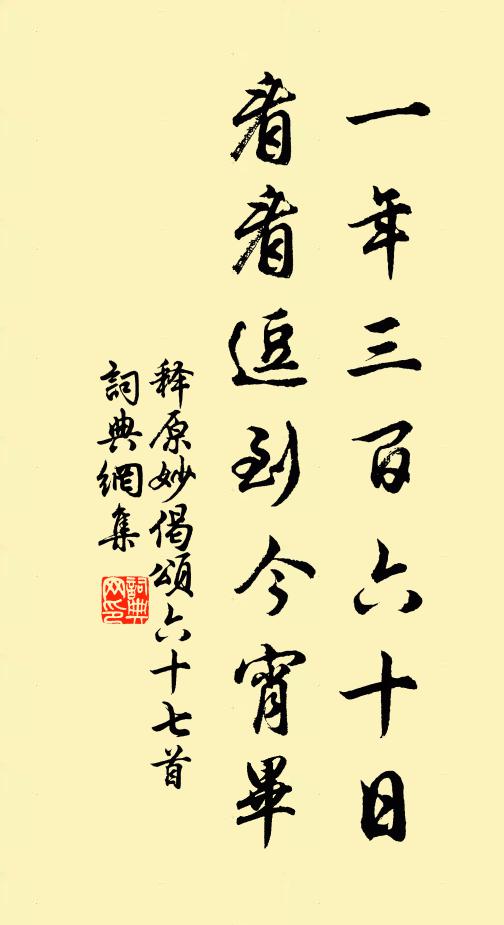 一年三百六十日
看看逗到今宵畢
释原妙偈頌六十七首
詞典網集
詞典网印